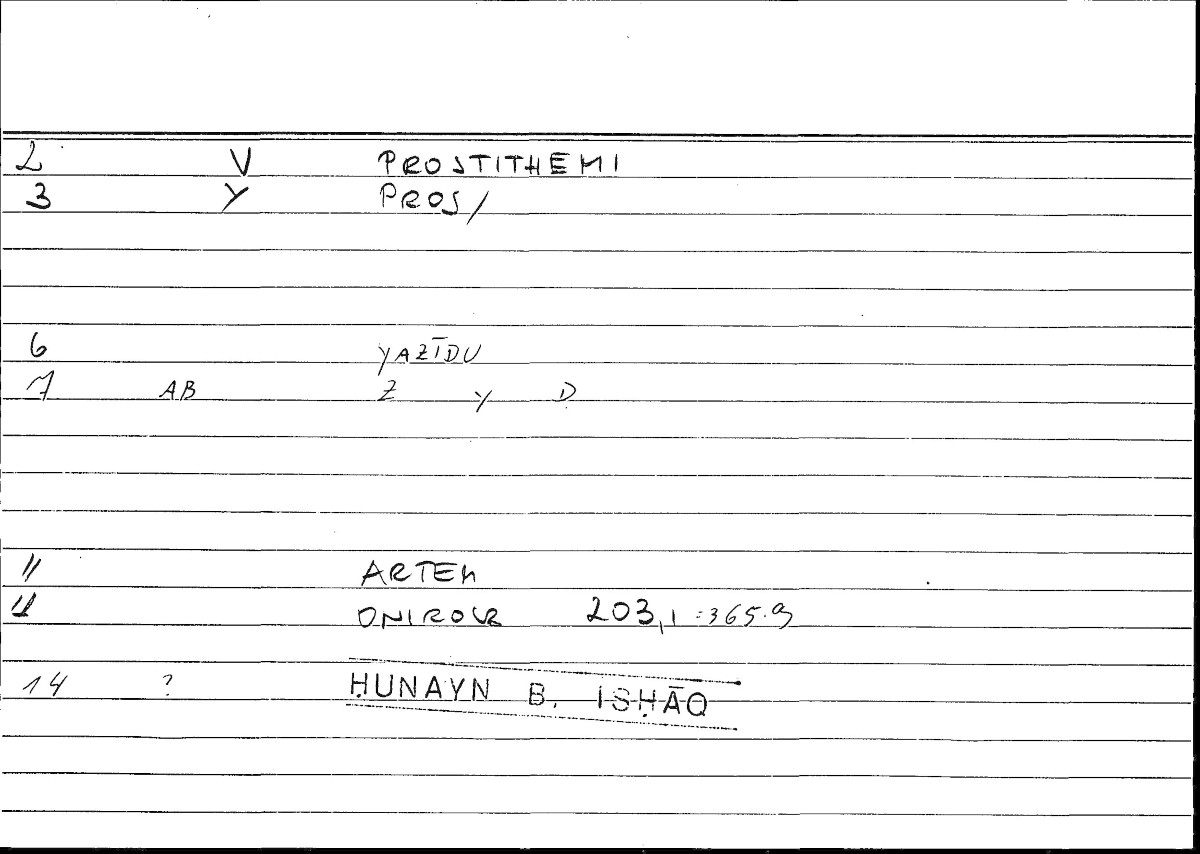 2 V PROSTITHEMI
3 Y PROS/
6 YAZĪDU
7 AB Z Y D
11 ARTEM
12 ONIROCR 203,1 :365.9
14 ? ḤUNAYN B. ISḤĀQ